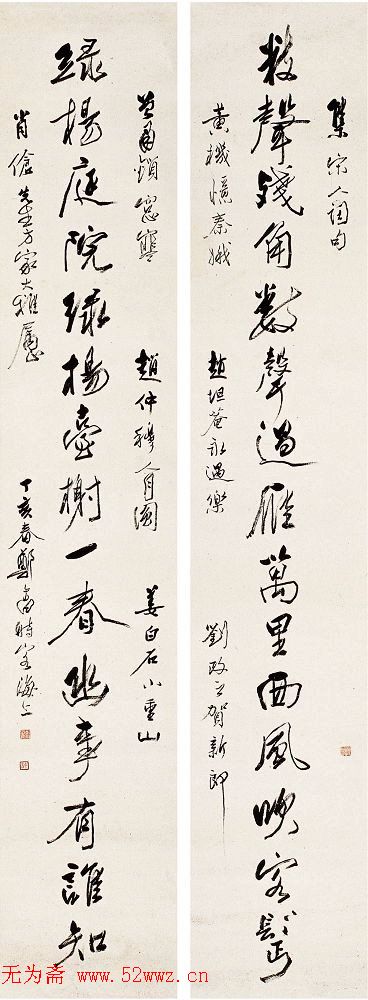 集宋人詞句
數聲殘角數聲過雁萬里西風吹客鬢
黃機憶秦娥
趙坦菴永遇樂
劉改之賀新郎
鎖窗寒
趙仲穆人月圓
姜白石小重山
綠楊庭院綠楊臺榭一春幽事有誰知
肖傖先生方家大雅屬
丁亥春鄭 時客海上
无为斋 www.52wwz.cn